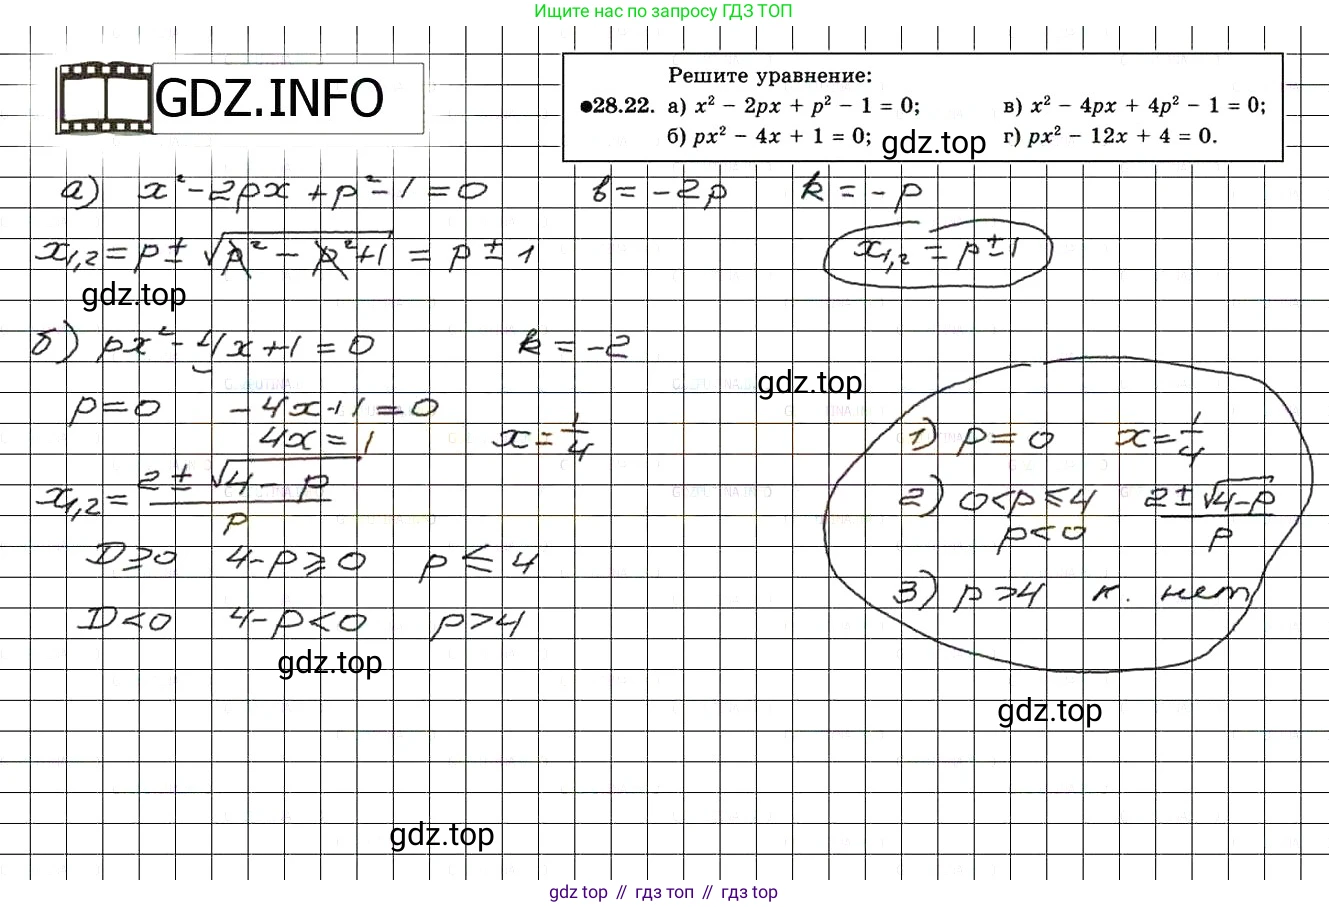 Ищите нас по запросу ГДЗ ТОП
GDZ.INFO
Решите уравнение:
●28.22. а) x² − 2px + p² − 1 = 0; в) x² − 4px + 4p² − 1 = 0;
б) px² − 4x + 1 = 0; г) px² − 12x + 4 = 0.
gdz.top
а) x² − 2px + p² − 1 = 0 b = −2p k = −p
x₁,₂ = p ± √(p² − p² + 1) = p ± 1 x₁,₂ = p ± 1
gdz.top
б) px² − 4x + 1 = 0 k = −2
gdz.top
p = 0 −4x + 1 = 0
4x = 1 x = 1/4
x₁,₂ = (2 ± √(4 − p))/p
D ≥ 0 4 − p ≥ 0 p ≤ 4
D < 0 4 − p < 0 p > 4
1) p = 0 x = 1/4
2) 0 < p ≤ 4 (2 ± √(4 − p))/p
p < 0
3) p > 4 к. нет
gdz.top
gdz.top
gdz.top
gdz top // гдз топ // гдз top